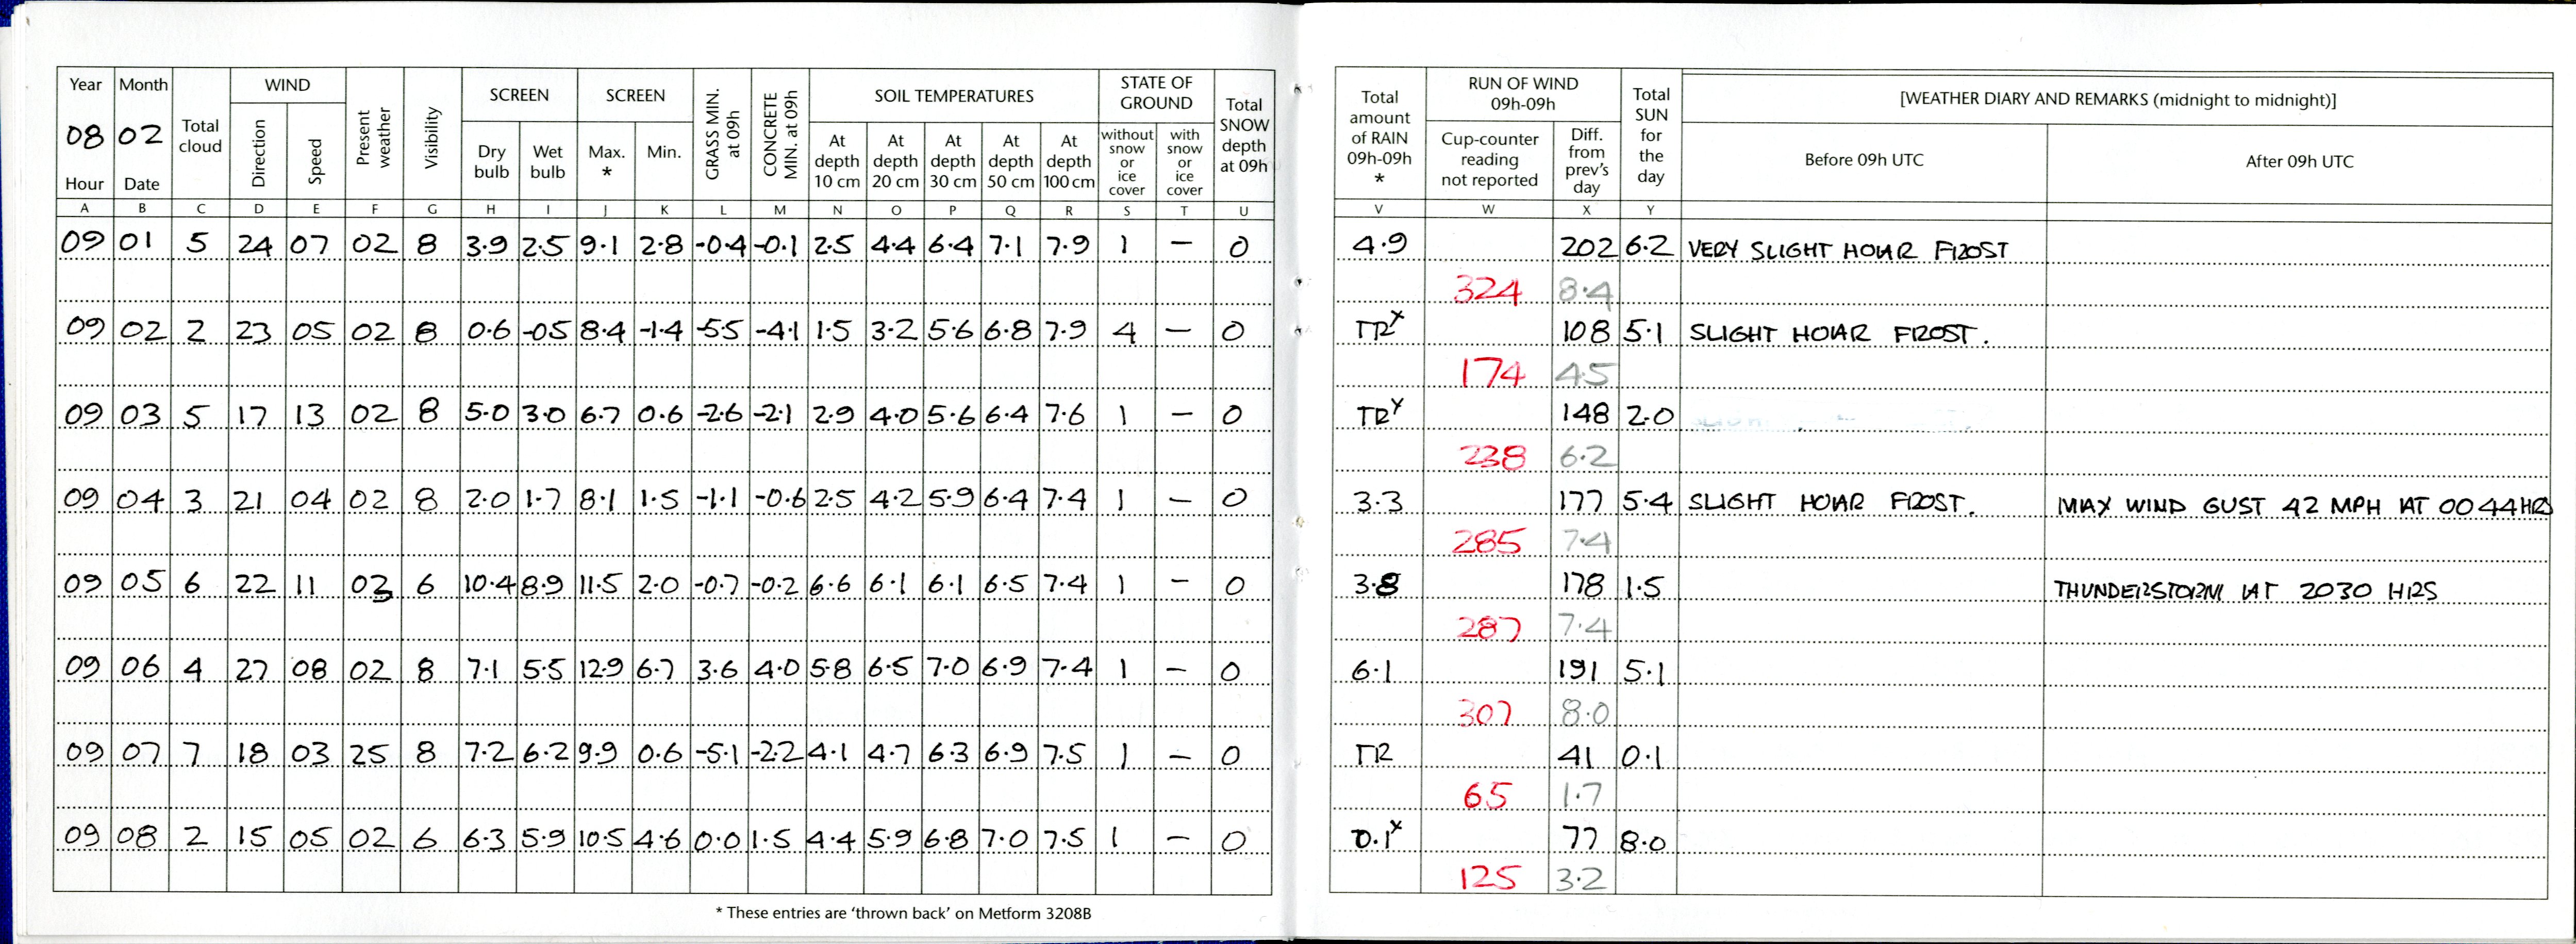 Year Month Total cloud WIND Present weather Visibility SCREEN SCREEN GRASS MIN. at 09h CONCRETE MIN. at 09h SOIL TEMPERATURES STATE OF GROUND Total SNOW depth at 09h
08 02 Direction Speed Dry bulb Wet bulb Max. * Min. At depth 10 cm At depth 20 cm At depth 30 cm At depth 50 cm At depth 100 cm without snow or ice cover with snow or ice cover
Hour Date
A B C D E F G H I J K L M N O P Q R S T U
09 01 5 24 07 02 8 3.9 2.5 9.1 2.8 -0.4 -0.1 2.5 4.4 6.4 7.1 7.9 1 — 0
09 02 2 23 05 02 8 0.6 -05 8.4 -1.4 -5.5 -4.1 1.5 3.2 5.6 6.8 7.9 4 — 0
09 03 5 17 13 02 8 5.0 3.0 6.7 0.6 -2.6 -2.1 2.9 4.0 5.6 6.4 7.6 1 — 0
09 04 3 21 04 02 8 2.0 1.7 8.1 1.5 -1.1 -0.6 2.5 4.2 5.9 6.4 7.4 1 — 0
09 05 6 22 11 03 6 10.4 8.9 11.5 2.0 -0.7 -0.2 6.6 6.1 6.1 6.5 7.4 1 — 0
09 06 4 27 08 02 8 7.1 5.5 12.9 6.7 3.6 4.0 5.8 6.5 7.0 6.9 7.4 1 — 0
09 07 7 18 03 25 8 7.2 6.2 9.9 0.6 -5.1 -2.2 4.1 4.7 6.3 6.9 7.5 1 — 0
09 08 2 15 05 02 6 6.3 5.9 10.5 4.6 0.0 1.5 4.4 5.9 6.8 7.0 7.5 1 — 0
* These entries are 'thrown back' on Metform 3208B
Total amount of RAIN 09h-09h * RUN OF WIND 09h-09h Total SUN for the day [WEATHER DIARY AND REMARKS (midnight to midnight)]
Cup-counter reading not reported Diff. from prev's day Before 09h UTC After 09h UTC
V W X Y
4.9 202 6.2 VERY SLIGHT HOAR FROST
324 8.4
TRx 108 5.1 SLIGHT HOAR FROST.
174 4.5
TRx 148 2.0
238 6.2
3.3 177 5.4 SLIGHT HOAR FROST. MAX WIND GUST 42 MPH AT 0044HRS
285 7.4
3.8 178 1.5 THUNDERSTORM AT 2030 HRS
287 7.4
6.1 191 5.1
307 8.0
TR 41 0.1
65 1.7
0.1x 77 8.0
125 3.2